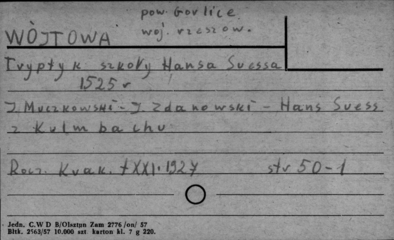 pow. Gorlice
WÓJTOWA woj. rzeszow.
Tryptyk szkoły Hansa Suessa
1525 r
J. Muczkowski - J. Zdanowski - Hans Suess
z Kulmbachu
Rocz. Krak. tXXI. 1927 str 50-1
Jedn. C.W D B/Olsztyn Zam 2776 /on/ 57
Bltk. 2563/57 10.000 szt karton kl. 7 g 220.